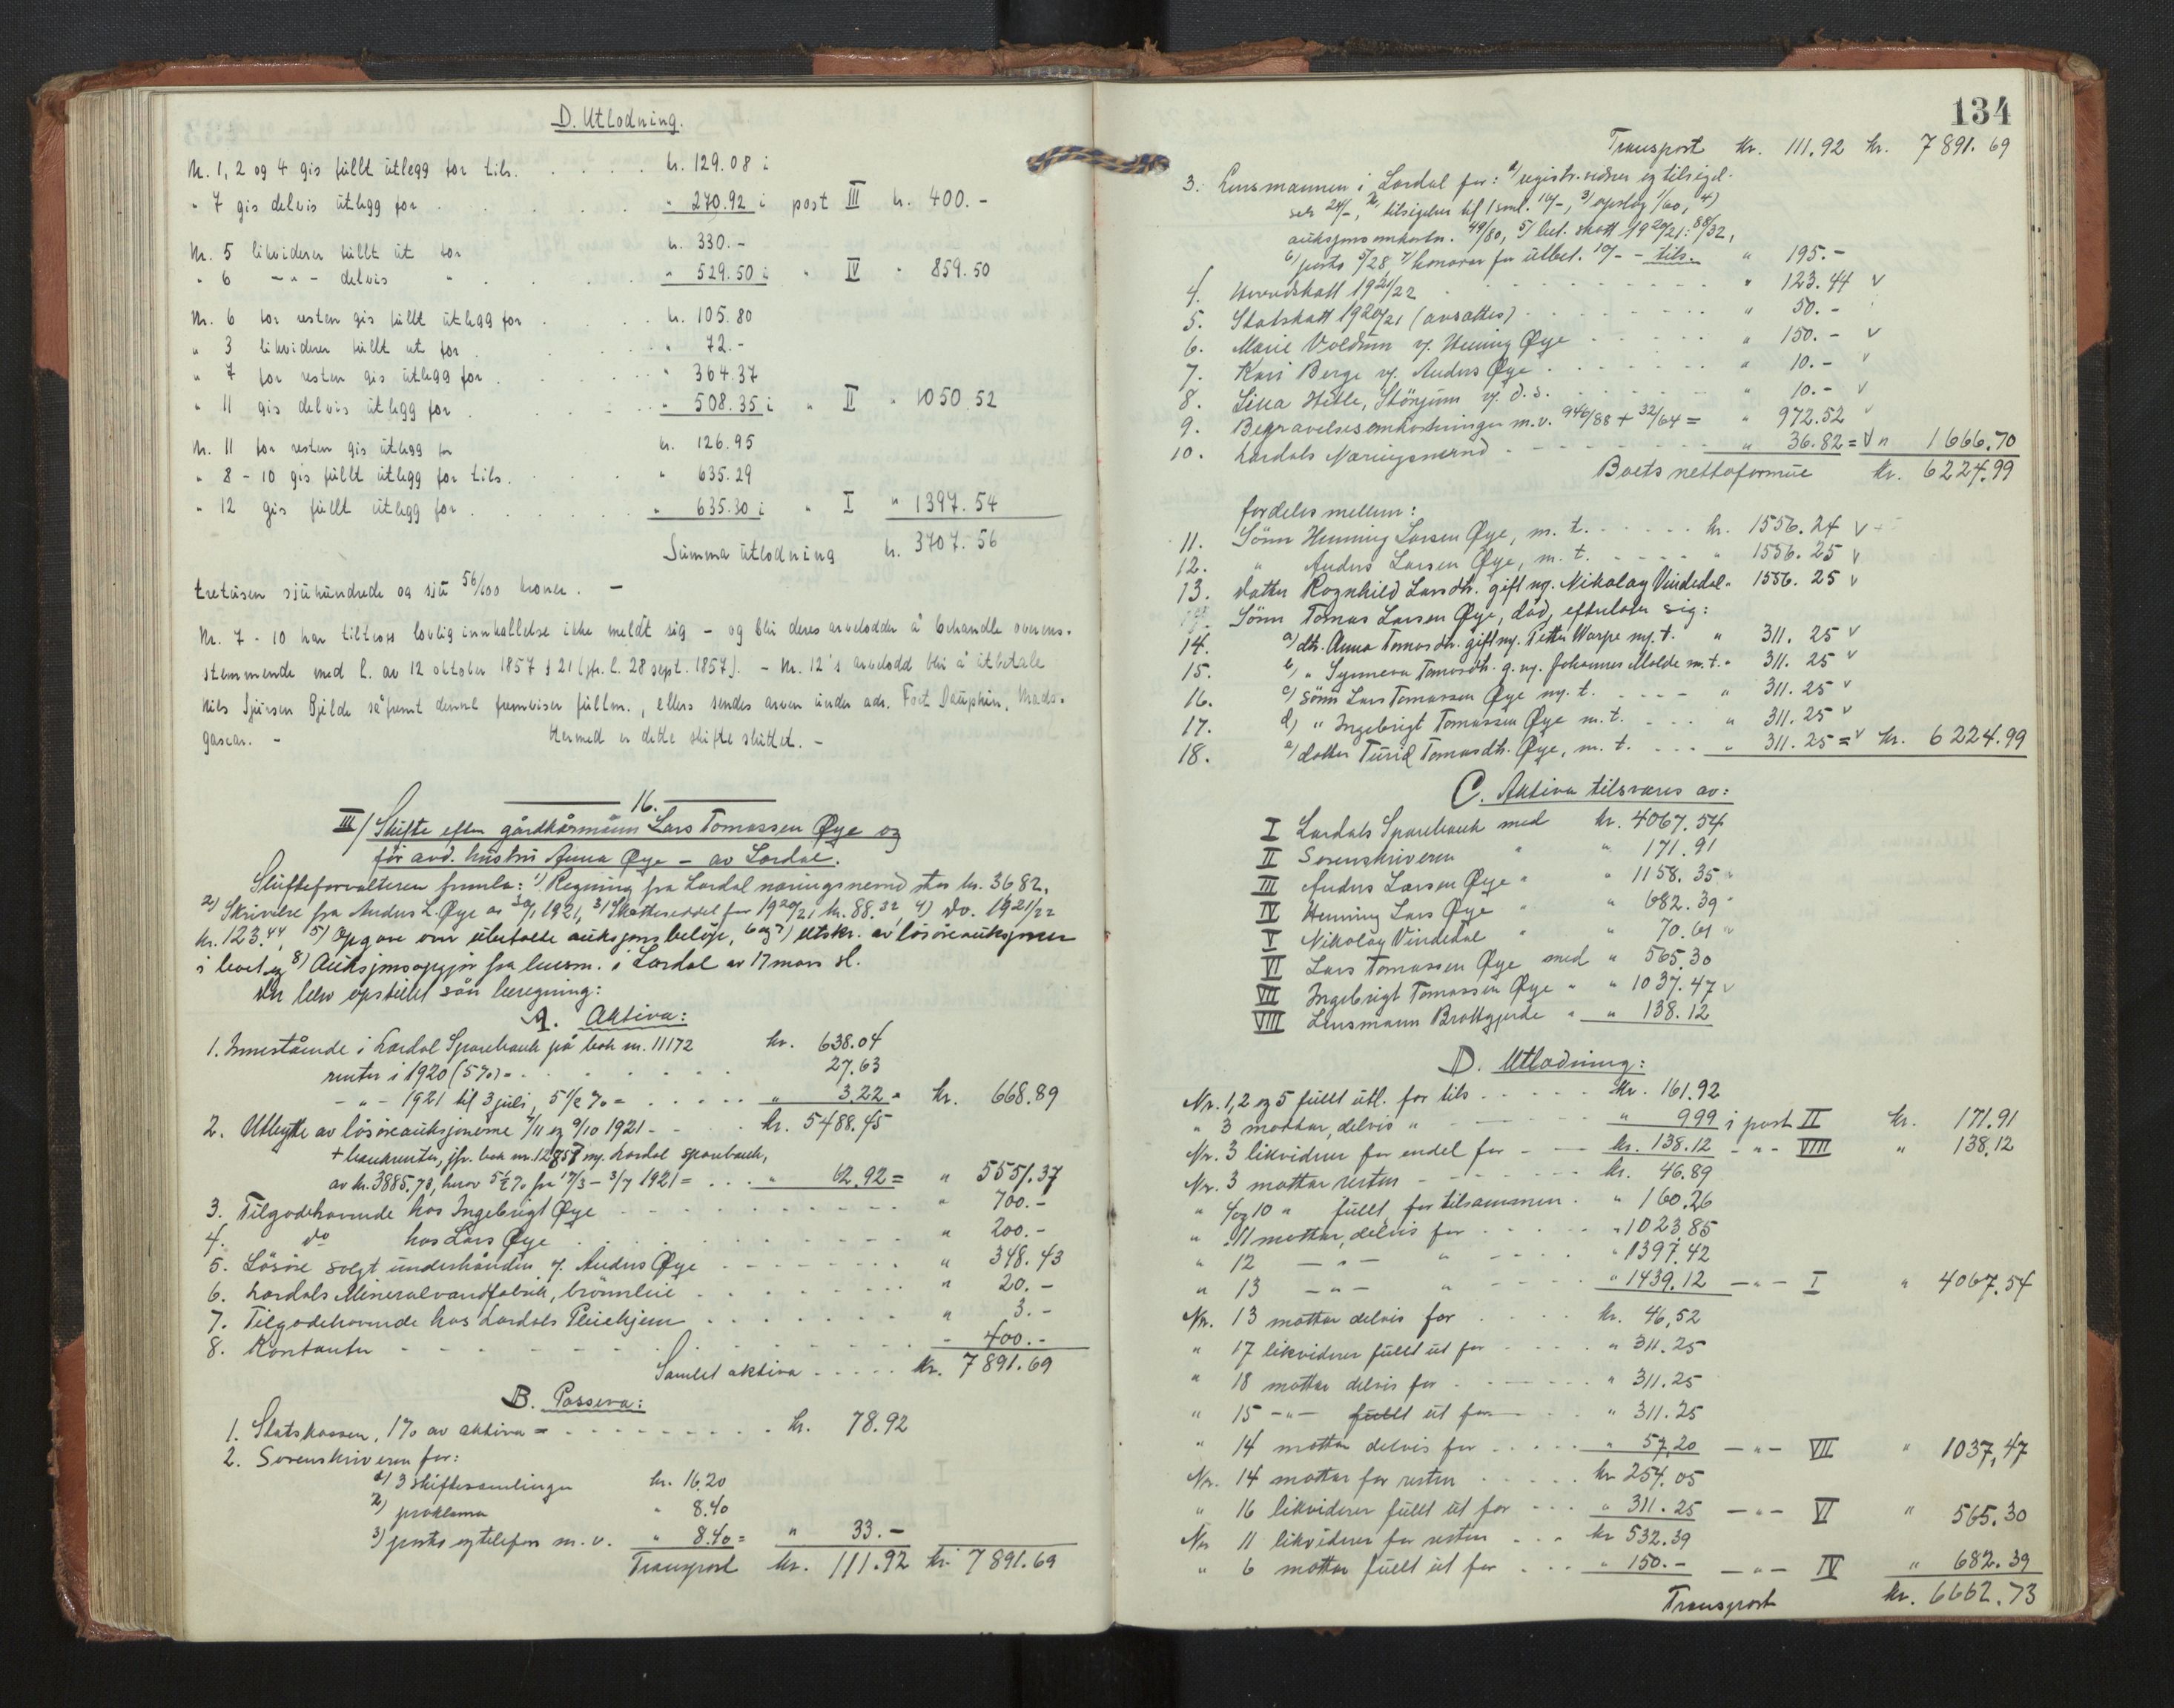 D. Utlodning.
Nr. 1, 2 og 4 gis fullt utlegg for tils. . . . . kr. 129.08 i
" 7 gis delvis utlegg for . . . . . " 270.92 i post III kr. 400.-
Nr. 5 likviderer fullt ut for kr. 330.-
" 6 -"- delvis " . . . . " 529.50 i " IV " 859.50
Nr. 6 for resten gis fullt utlegg for . . . . kr. 105.80
" 3 likviderer fullt ut for . . . . " 72.-
" 7 for resten gis utlegg for . . . . " 364.37
" 11 gis delvis utlegg for . . . . " 508.35 i " II " 1050.52
Nr. 11 for resten gis utlegg for kr. 126.95
" 8 - 10 gis fullt utlegg for tils. . . . " 635.29
" 12 gis fullt utlegg for . . . . . " 635.30 i " I " 1397.54
Summa utlodning kr. 3707.56
tretusen sjuhundrede og sju 56/100 kroner. -
Nr. 7 - 10 har tiltross lovlig innkallelse ikke meldt sig - og blir deres arvelodder å behandle overens-
stemmende med l. av 12 oktober 1857 § 21 (jfr. l. 28 sept. 1857). - Nr. 12's arvelodd blir å utbetale
Nils Sjursen Bjelde såfremt denne fremviser fullm., ellers sendes arven under adr. Fort Dauphin, Mada-
gascar. - Hermed er dette skifte sluttet. -
16.
III/ Skifte efter gårdkårmann Lars Tomassen Øye og
før avd. hustru Anna Øye - av Lærdal.
Skifteforvalteren fremla: 1) Regning fra Lærdal næringsnemd stor kr. 36.82,
2) Skrivelse fra Anders L. Øye av 30/1 1921, 3) Skatteseddel for 1920/21 kr. 88.32, 4) do. 1921/22
kr. 123.44, 5) Opgave over ubetalte auksjonsbeløp, 6 og 7) utskr. av løsøreauksjoner
i boet og 8) Auksjonsopgjør fra lensm. i Lærdal av 17 mars sl.
Der blev opstillet sån beregning:
A. Aktiva:
1. Innestående i Lærdal Sparebank på bok nr. 11172 kr. 638.04
renter i 1920 (5%) = . . . . . . 27.63
-"- 1921 til 3 juli, 5 1/2 % = . . . . . " 3.22 = kr. 668.89
2. Utbytte av løsøreauksjonerne 7/11 og 9/10 1921 - - kr. 5488.45
+ bankrenter, jfr. bok nr. 12857 og Lærdal sparebank,
av kr. 3885.78, herav 5 1/2 % fra 17/3 - 3/7 1921 = . . . " 62.92 = " 5551.37
3. Tilgodehavende hos Ingebrigt Øye - - - - " 700.-
4. do hos Lars Øye . . . . . " 200.-
5. Løsøre solgt underhånden v. Anders Øye - - - - " 348.43
6. Lærdals Mineralvandfabrik, brønnleie . . . . " 20.-
7. Tilgodehavende hos Lærdals Pleiehjem . . . . " 3.-
8. Kontanter - - - - - - 400.-
Samlet aktiva . . . . . kr. 7891.69
B. Passiva:
1. Statskassen, 1% av aktiva = - - - - - kr. 78.92
2. Sorenskriveren for:
1) 3 skiftesamlinger kr. 16.20
2) proklama " 8.40
3) porto og telefon m. v. " 8.40 = " 33.-
Transport kr. 111.92 kr. 7891.69
134
Transport kr. 111.92 kr. 7891.69
3. Lensmannen i Lærdal for: 1) registr. vidner og tilsigel-
ser 24/-, 2) tilsigelser til 1 saml. 16/-, 3) opslag 1/60, 4)
auksjonsomkostn. 49/80, 5) bet. skatt 1920/21: 88/32,
6) porto 5/28, 7) honorar for utbet. 10/- - tils. " 195.-
4. Herredskatt 1921/22 . . . . . . " 123.44 v
5. Statskatt 1920/21 (avsattes) . . . . . " 50.-
6. Marie Voldum v. Henning Øye . . . . . " 150.- v
7. Kari Berge v. Anders Øye . . . . . " 10.- v
8. Lina Hetle, Stönjum v. d. s. . . . . " 10.- v
9. Begravelsesomkostninger m.v. 946/88 + 32/64 = " 972.52 v
10. Lærdals Næringsnemd - - - - " 36.82 = v " 1666.70
Boets nettoformue kr. 6224.99
fordeles mellem:
11. Sønn Henning Larsen Øye, m. t. - - - - kr. 1556.24 v
12. " Anders Larsen Øye, m. t. - - - - " 1556.25 v
13. Datter Ragnhild Larsdtr. gift m. Nikolay Vindedal " 1556.25 v
Sønn Tomas Larsen Øye, död, efterlater sig:
14. a) dtr. Anna Tomasdtr. gift m. Petter Warpe m. t. " 311.25 v
15. b) " Synneva Tomasdtr. g. m. Johannes Molde m. t. " 311.25 v
16. c) Sønn Lars Tomassen Øye m. t. - - - - " 311.25 v
17. d) " Ingebrigt Tomassen Øye m. t. - - - " 311.25 v
18. e) datter Turid Tomasdtr. Øye, m. t. - - - " 311.25 = v kr. 6224.99
C. Aktiva tilsvares av:
I Lærdals Sparebank med kr. 4067.54
II Sorenskriveren " " 171.91
III Anders Larsen Øye " " 1158.35
IV Henning Lars Øye " " 682.39
V Nikolay Vindedal " " 70.61
VI Lars Tomassen Øye med " 565.30
VII Ingebrigt Tomassen Øye " " 1037.47 v
VIII Lensmann Brattgjerde " " 138.12
D. Utlodning:
Nr. 1, 2 og 5 fullt utl. for tils - - - - kr. 161.92
" 3 mottar, delvis " - - - - " 9.99 i post II kr. 171.91
Nr. 3 likviderer for endel for - - - kr. 138.12 -"- VIII " 138.12
Nr. 3 mottar resten - - - - kr. 46.89
" 4 og 10 " fullt for tilsammen . " 160.26
" 11 mottar, delvis for - - - - " 1023.85
" 12 -"- " - - - - " 1397.42
" 13 -"- " - - - - " 1439.12 -"- I " 4067.54
Nr. 13 mottar delvis for . . . . kr. 46.52
" 17 likviderer fullt ut for - - - - " 311.25
" 18 mottar delvis for . - - - - " 311.25
" 15 -"- fullt ut for - . . " 311.25
" 14 mottar delvis for . . . . " 57.20 -"- VII " 1037.47
Nr. 14 mottar for resten . . . . kr. 254.05
" 16 likviderer fullt ut for - - - " 311.25 -"- VI " 565.30
Nr. 11 likviderer for resten . . . kr. 532.39
" 6 mottar fullt ut for . . . " 150.- -"- IV " 682.39
Transport kr. 6662.73